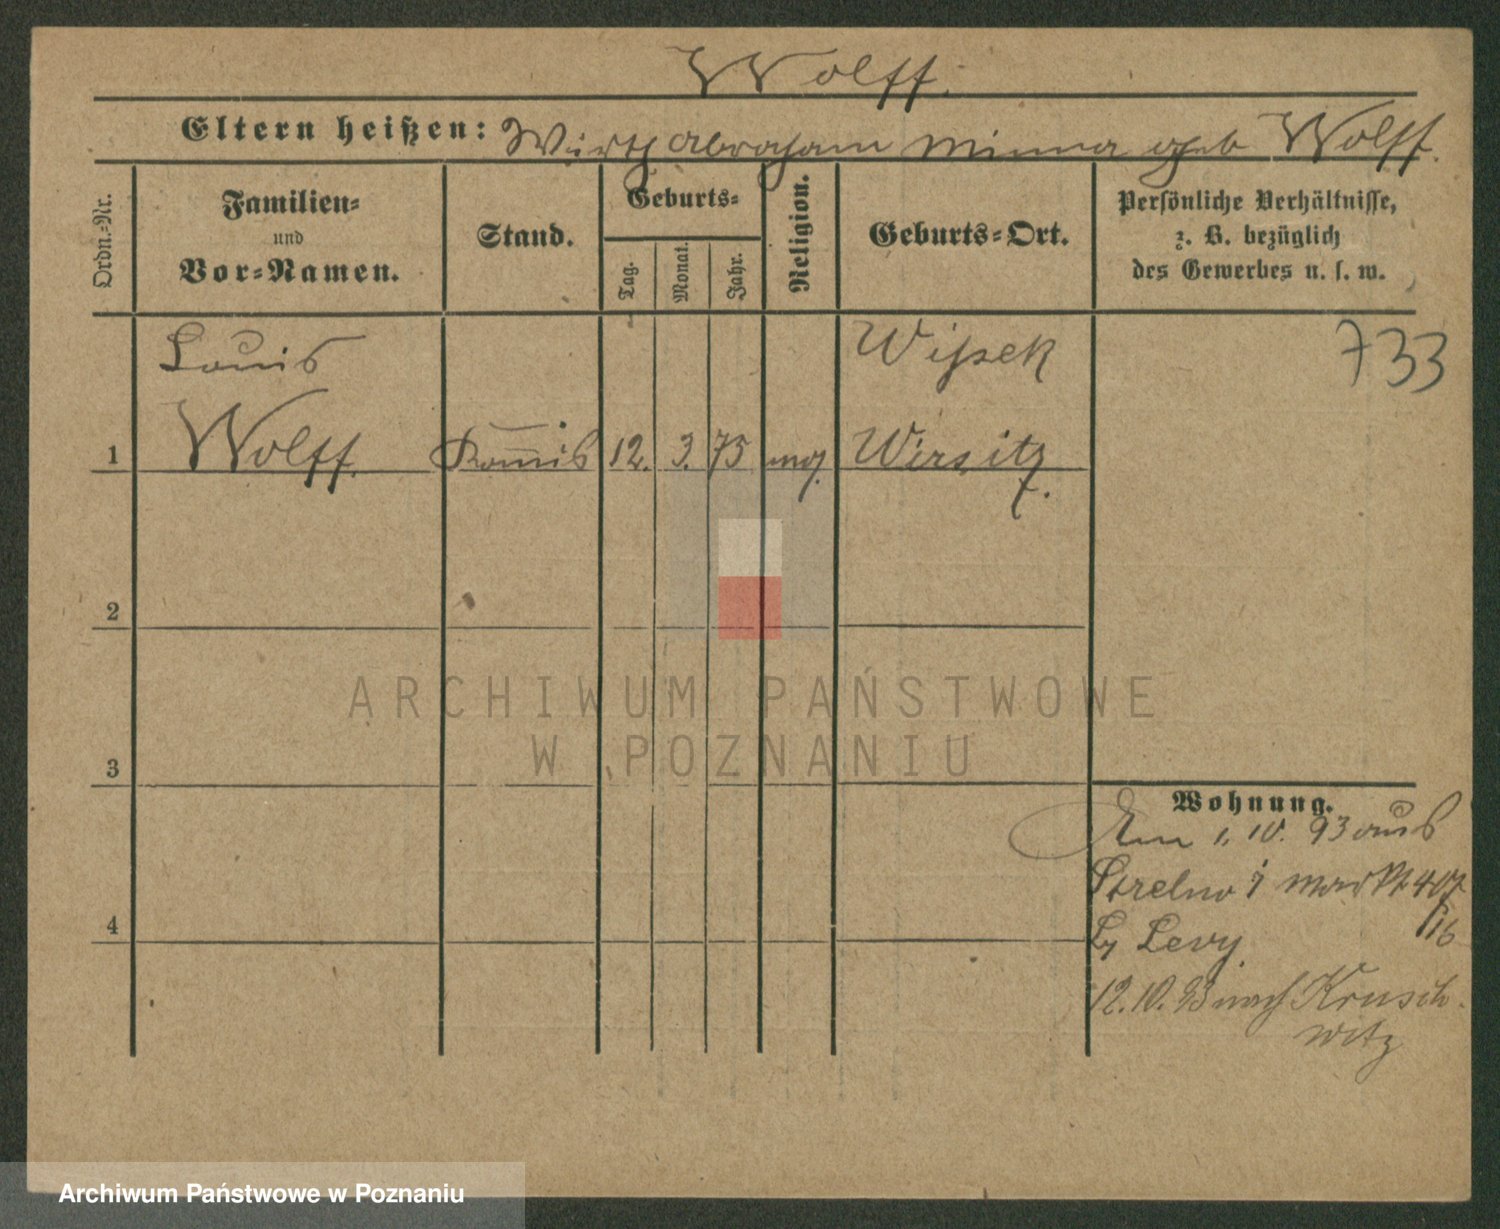 Wolff.
Eltern heißen: Wirth Abraham Minna geb Wolff.
Ordn.-Nr.
Familien-
und
Vor-Namen.
Stand.
Geburts-
Tag.
Monat.
Jahr.
Religion.
Geburts-Ort.
Persönliche Verhältnisse,
z. B. bezüglich
des Gewerbes u. s. w.
Louis
Wissek
733
1 Wolff. Kommis 12. 3. 75 mos. Wirsitz.
2
3
4
Wohnung.
Am 1. 10. 93 aus
Strelno Markt
Levy.
12. 10. 93 nach Krusch-
witz
ARCHIWUM PAŃSTWOWE
W POZNANIU
Archiwum Państwowe w Poznaniu